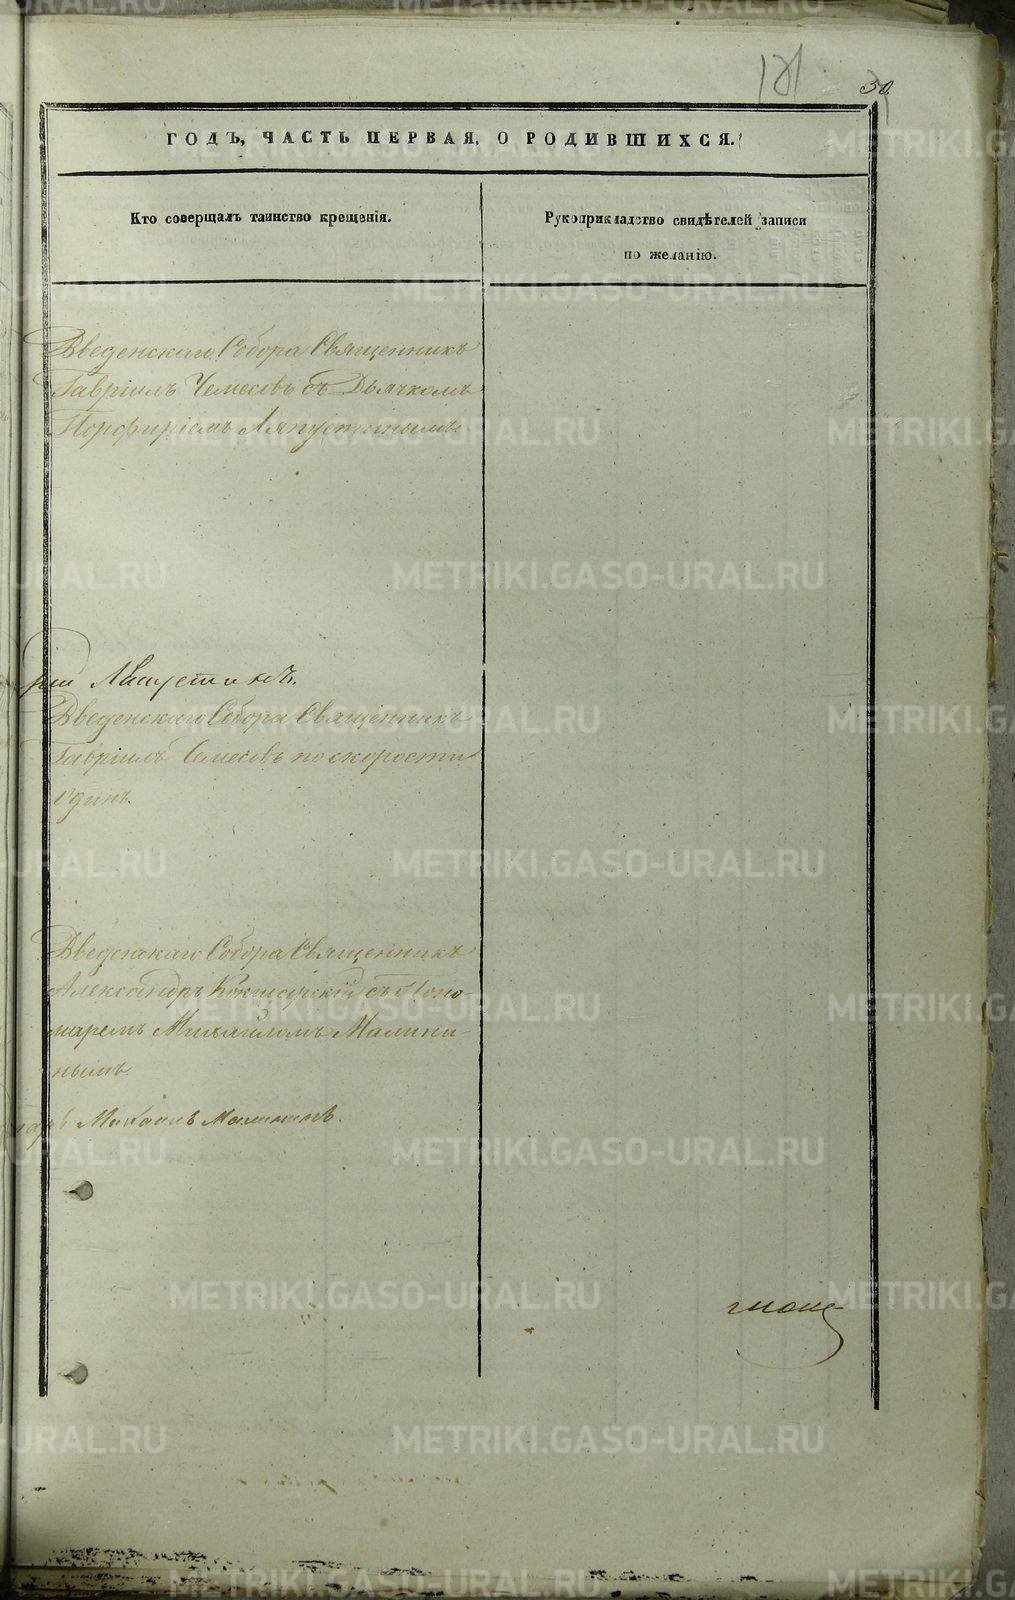 181
50
ГОДЪ, ЧАСТЬ ПЕРВАЯ, О РОДИВШИХСЯ.
Кто совершалъ таинство крещенія.
Рукоприкладство свидѣтелей записи
по желанію.
Введенскаго Собора Священникъ
Гавріилъ Чемесовъ съ Дьячкомъ
Порфиріемъ Ляпустинымъ
рій Ляпустинъ.
Введенскаго Собора Священникъ
Гавріилъ Чемесовъ по скорости
одинъ.
Введенскаго Собора Священникъ
Александръ Кокшарскій съ Поно-
маремъ Михаиломъ Малини-
нымъ.
марь Михаилъ Малининъ.
METRIKI.GASO-URAL.RU